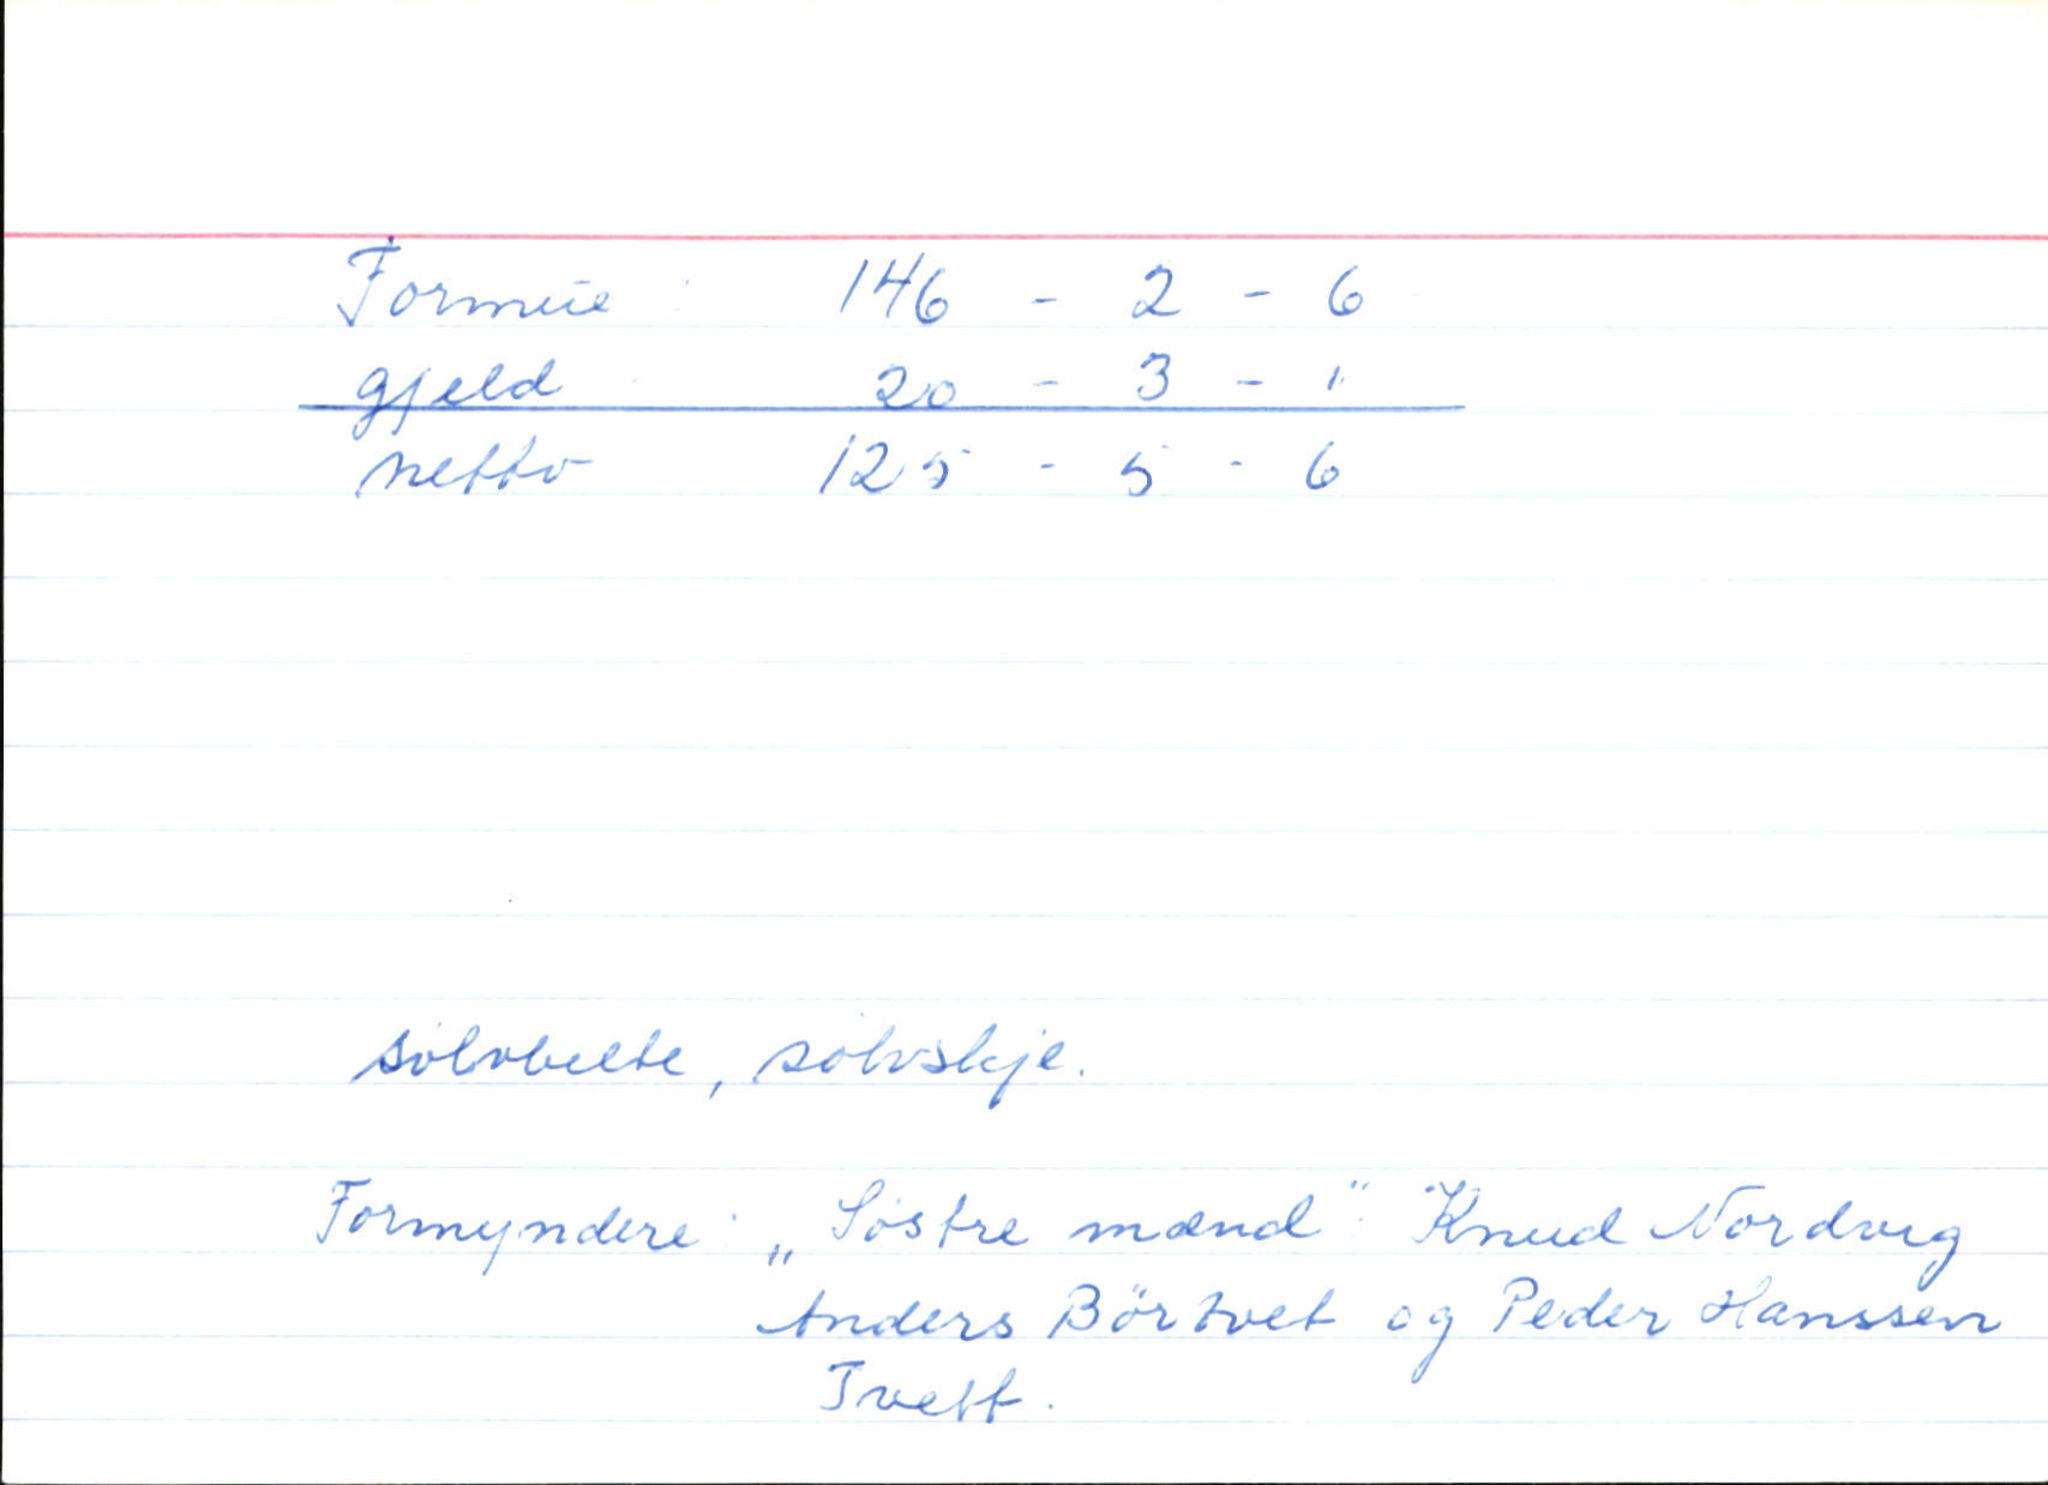 Formue : 146 - 2 - 6
gjeld . 20 - 3 - "
netto 125 - 5 - 6
sølvbelte, sølvskje.
Formyndere : „Søstre mænd" Knud Nordvig
Anders Börtvet og Peder Hanssen
Tvett.